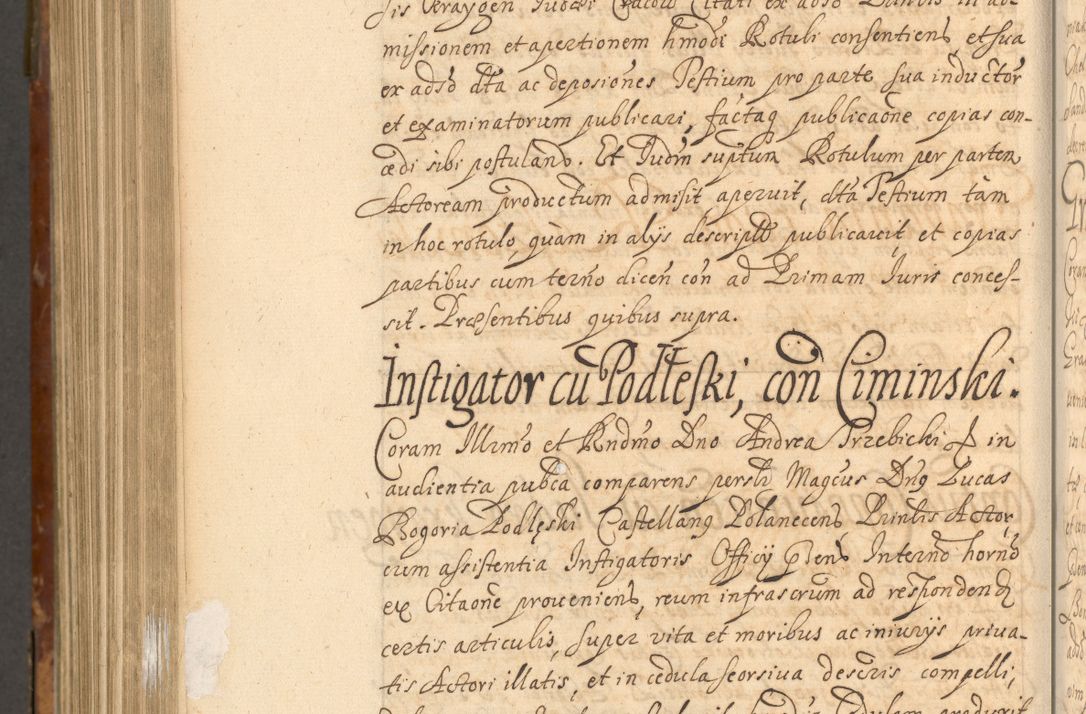 missionem et apertionem hmodi Rotuli consentiens, et sua
ex adso dta ac deposiones Testium pro parte sua inductor
et examinatorum publicari, factaq publicaone copias con-
cedi sibi postulans. Et Judin suptum Rotulum per partem
Actoream productum admisit aperuit, dta Testium tam
in hoc rotulo, quam in alys descript publicavit et copias
partibus cum termo dicen con ad Primam Juris conces-
sit. Præsentibus quibus supra.
Instigator cu Podłęski, con Ciminski.
Coram Illmo et Rndmo Dno Andrea Trzebicki in
audientia pubca comparens persl Magcus Dnq Lucas
Bogoria Podłęski Castellanq Polanecens Prinlis Actor
cum assistentia Instigatoris Officy Interno horno
ex Citaone proveniens, reum infrascrum ad respondend
certis articulis, super vita et moribus ac iniurys priua-
tis Actori illatis, et in cedula seorsiva descris compelli,